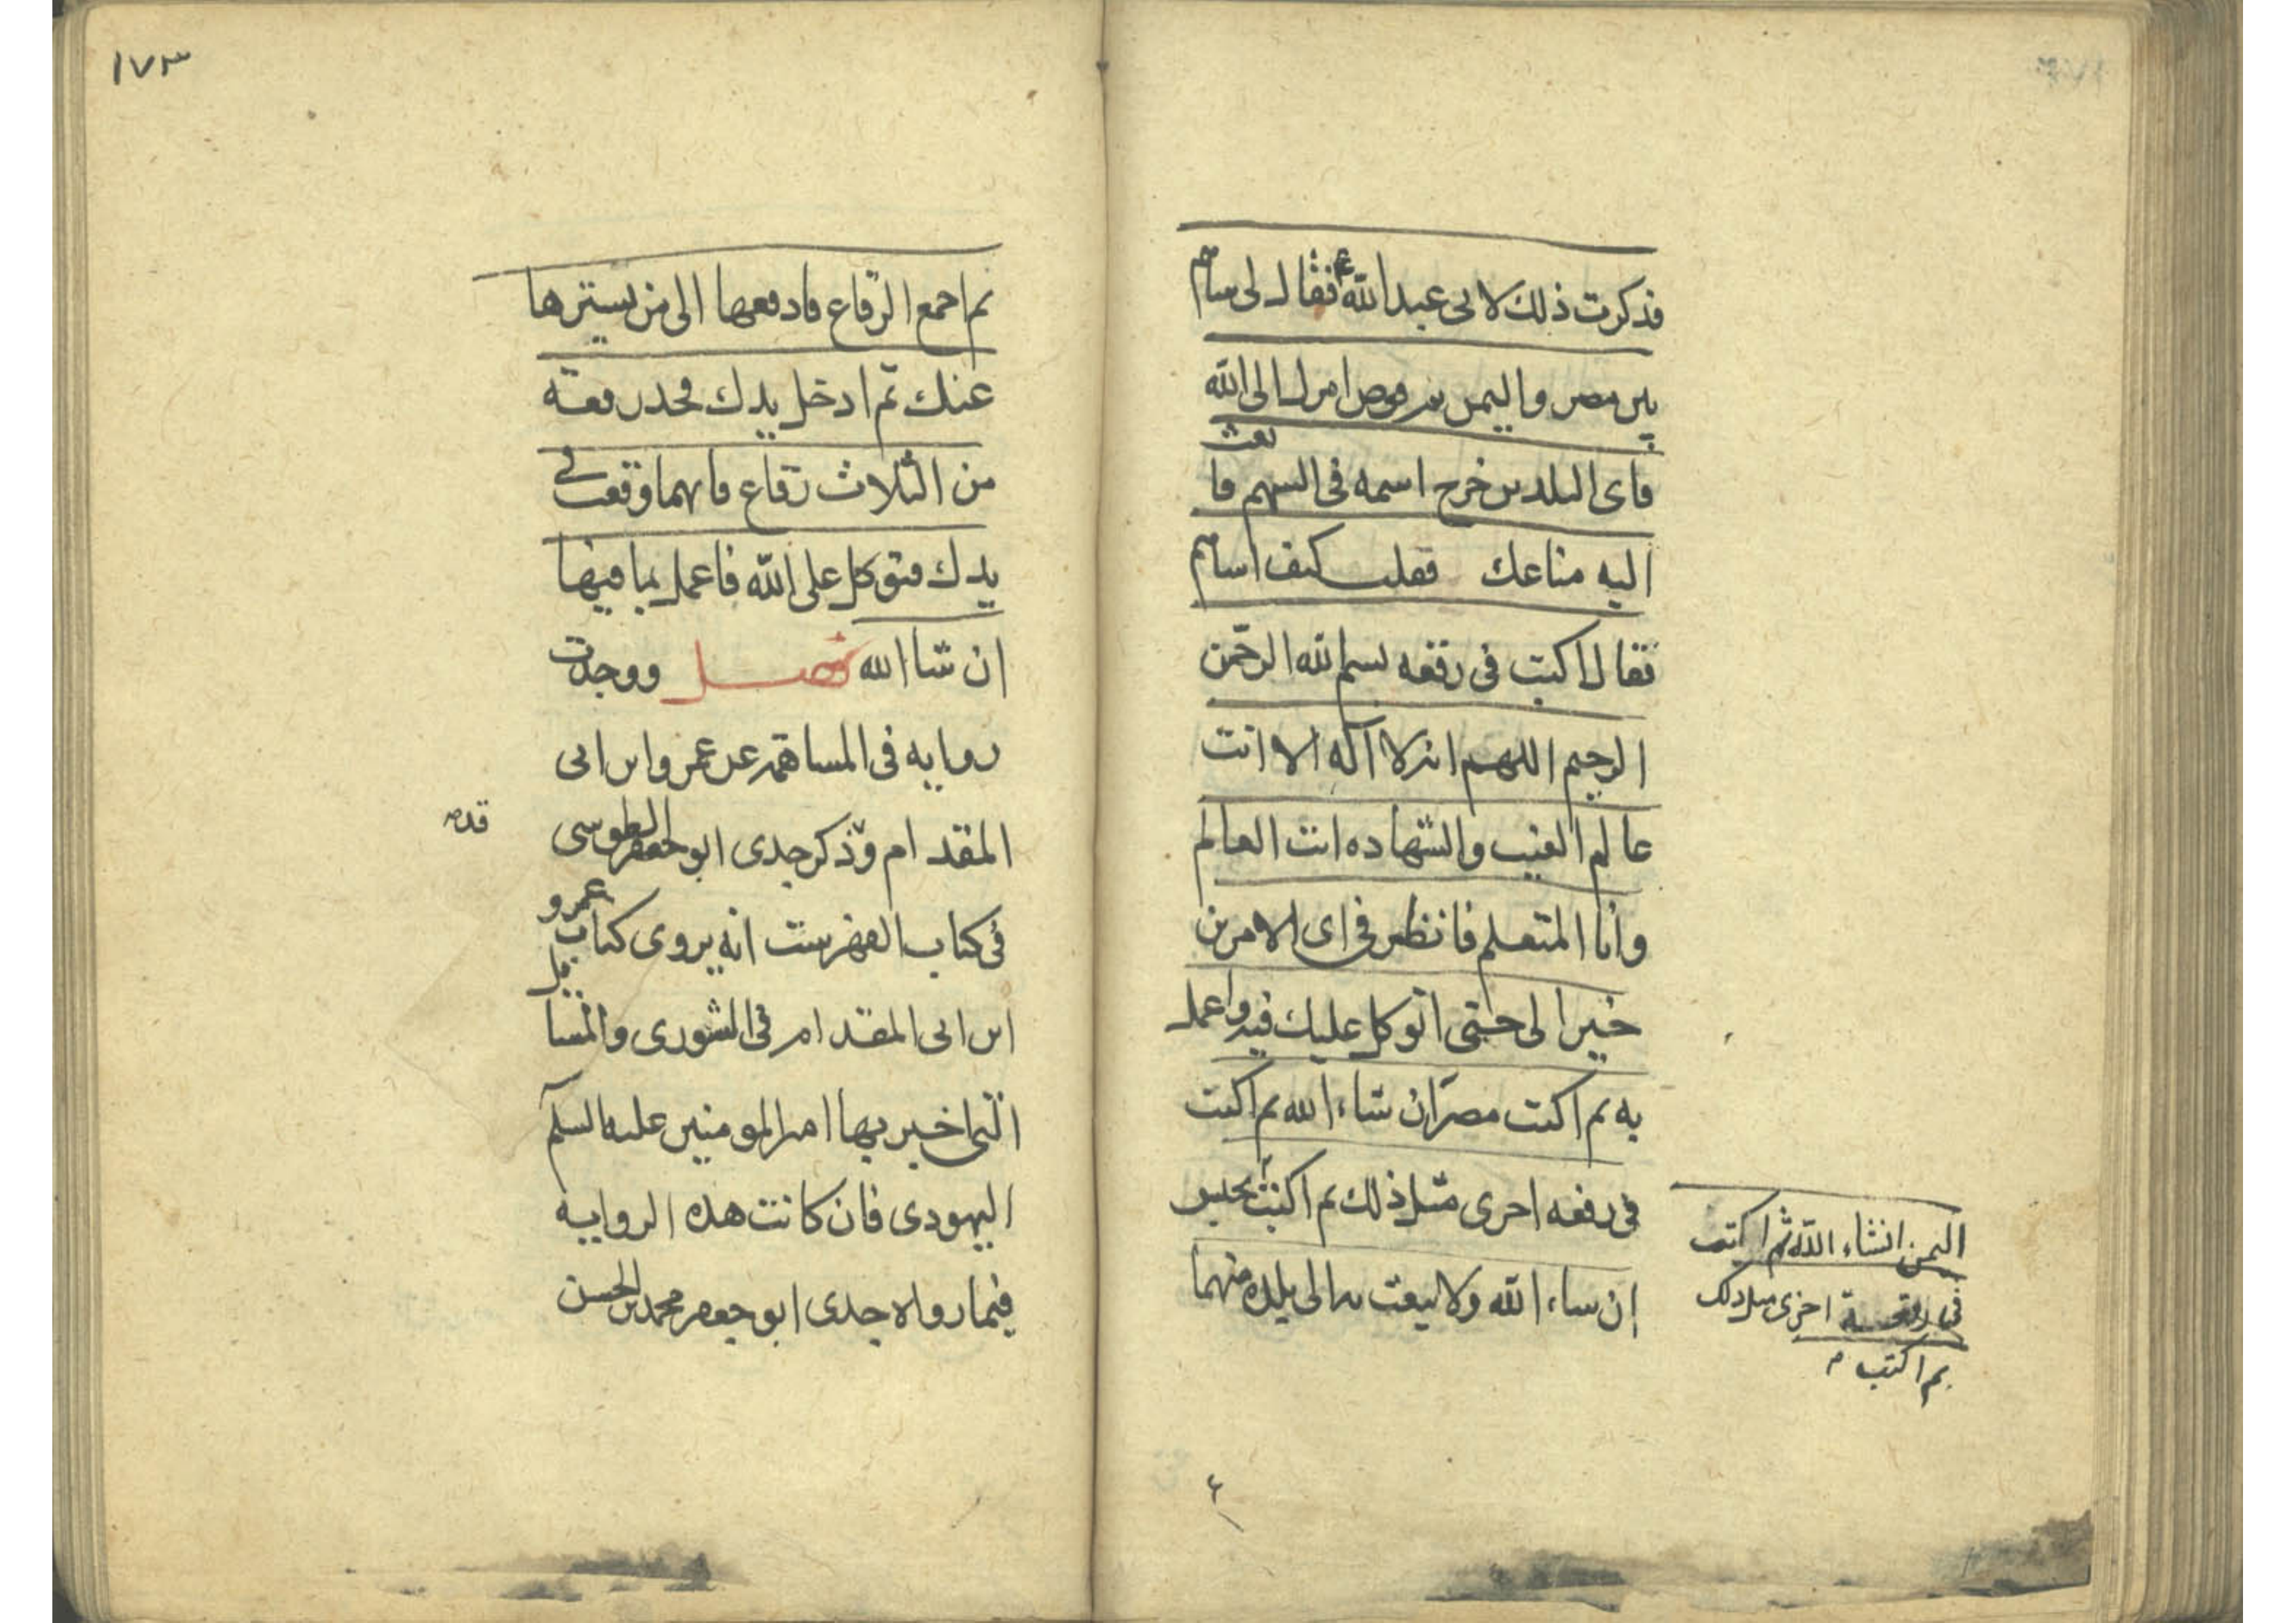 فذكرت ذلك لابى عبد الله ع فقال لى ساهم
بين مصر واليمن ثم فوض امرك الى الله
فاى البلدين خرج اسمه فى السهم فا
بعث
اليه متاعك فقلت كيف اساهم
فقال اكتب فى رقعه بسم الله الرحمن
الرحيم اللهم انه لا آله الا انت
عالم الغيب والشهاده انت العالم
وانا المتعلم فانظر فى اى الامرين
خيرا لى حتى اتوكل عليك فيه واعمل
به ثم اكتب مصر ان شاء الله ثم اكتب
فى رقعه اخرى مثل ذلك ثم اكتب يحبس
ان شاء الله ولا يبعث به الى بلده منهما
اليمن انشاء الله ثم اكتب
فى رقعة اخرى مثل ذلك
ثم اكتب
١٧٣
ثم اجمع الرقاع فادفعها الى من يسترها
عنك ثم ادخل يدك فخذ رقعة
من الثلاث رقاع فايهما وقعت فى
يدك فتوكل على الله فاعمل بما فيها
ان شاالله فصل ووجدت
روايه فى المساهمه عن عمرو ابن ابى
المقدام وذكر جدى ابو جعفر الطوسى
قده
فى كتاب الفهرست انه يروى كتاب عمرو
ابن ابى المقدام فى الشورى والمسا
يل
التى اخبر بها امير المومنين عليه السلم
اليهودى فان كانت هذه الرواية
فيما رواه جدى ابو جعفر محمد بن الحسن